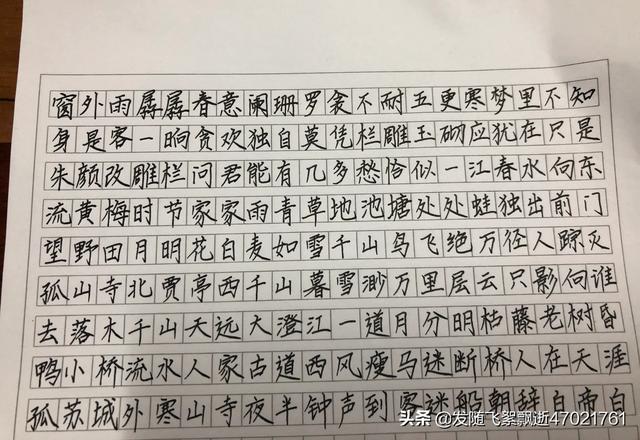 窗外雨孱孱春意阑珊罗衾不耐五更寒梦里不知
身是客一晌贪欢独自莫凭栏雕玉砌应犹在只是
朱颜改雕栏问君能有几多愁恰似一江春水向东
流黄梅时节家家雨青草地池塘处处蛙独出前门
望野田月明花白麦如雪千山鸟飞绝万径人踪灭
孤山寺北贾亭西千山暮雪渺万里层云只影向谁
去落木千山天远大澄江一道月分明枯藤老树昏
鸭小桥流水人家古道西风瘦马迷断桥人在天涯
孤苏城外寒山寺夜半钟声到客迷船朝辞白帝白
头条 @发随飞絮飘逝47021761